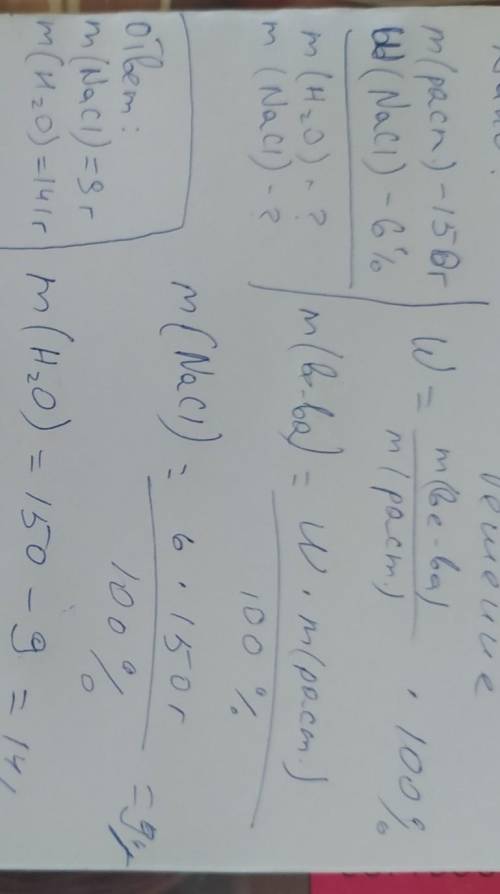 Решение
m(раст.) - 150г
W(NaCl) - 6%
m(H₂O) - ?
m(NaCl) - ?
W = m(ве-ва) / m(раст.) · 100%
m(ве-ва) = W · m(раст.) / 100%
m(NaCl) = 6 · 150г / 100% = 9г
m(H₂O) = 150 - 9 = 141
Ответ:
m(NaCl) = 9г
m(H₂O) = 141г